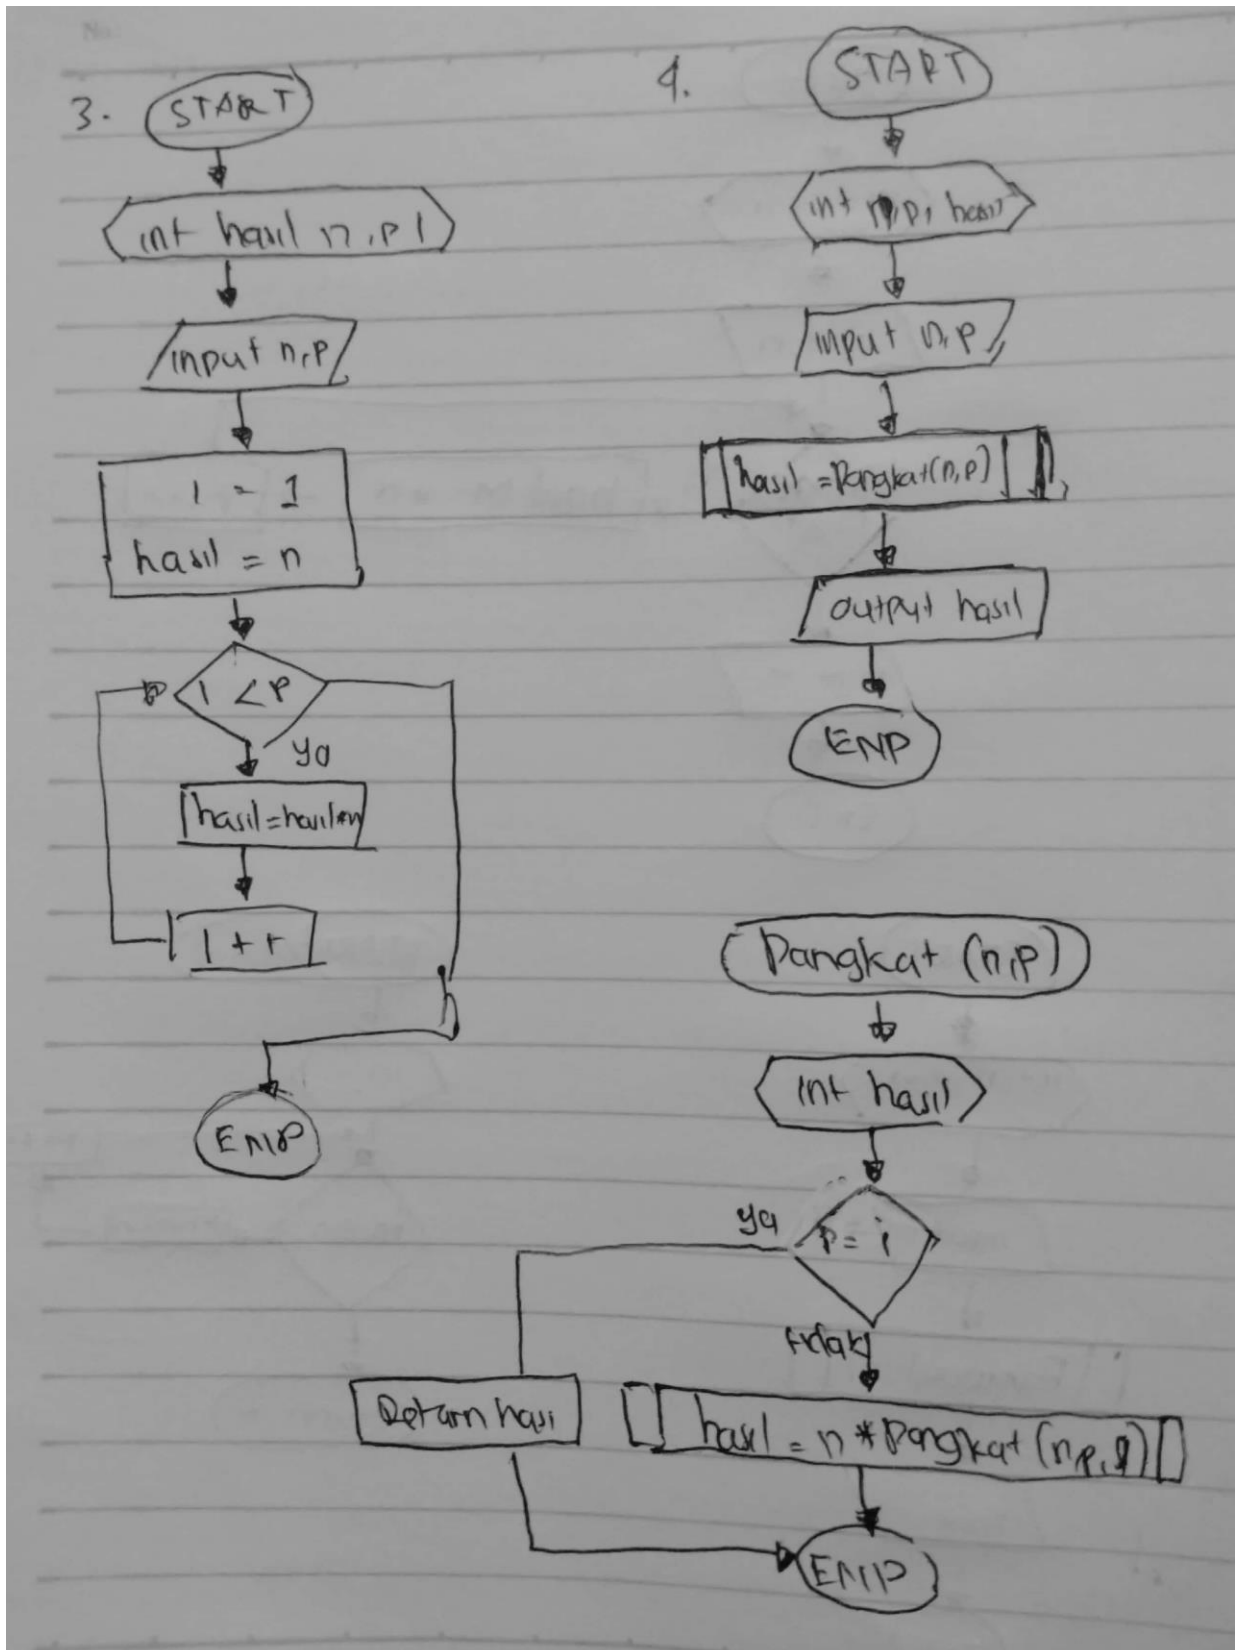 3. START
int hasil n,p i
input n,p
i = 1
hasil = n
i < p
ya
hasil=hasil*n
i++
END
4. START
int n,p, hasil
input n,p
hasil =Pangkat(n,p)
output hasil
END
Pangkat (n,p)
int hasil
ya
p= i
tidak
Return hasi
hasil = n * Pangkat (n
END